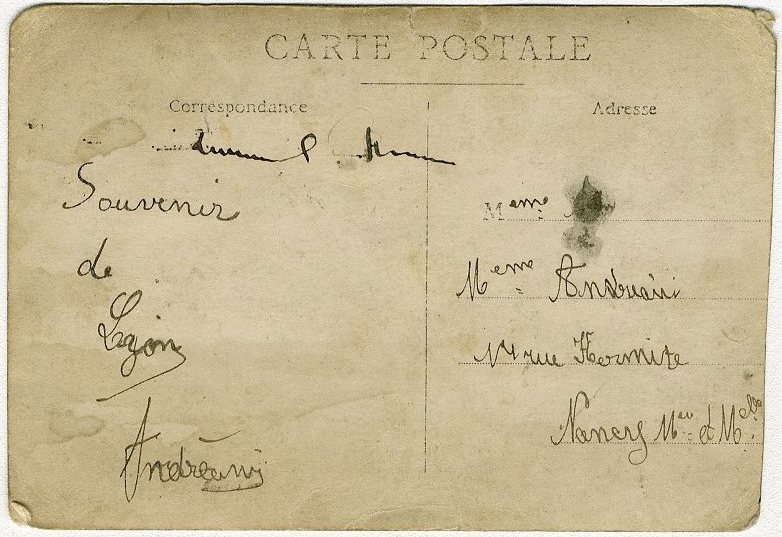 CARTE POSTALE
Correspondance
Adresse
Souvenir
de
Lyon
Andréani
Meme
Meme Andréani
rue Hermite
Nancy Meu et Melle